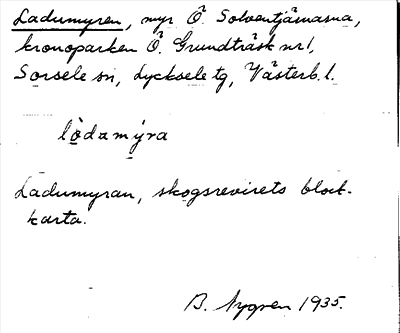 Ladumyren, myr Ö. Solventjärnarna,
kronoparken Ö. Grundträsk nr 1,
Sorsele sn, Lycksele tg, Västerb. l.
lòdamýra
Ladumyran, skogsrevirets block-
karta.
B. Nygren 1935.